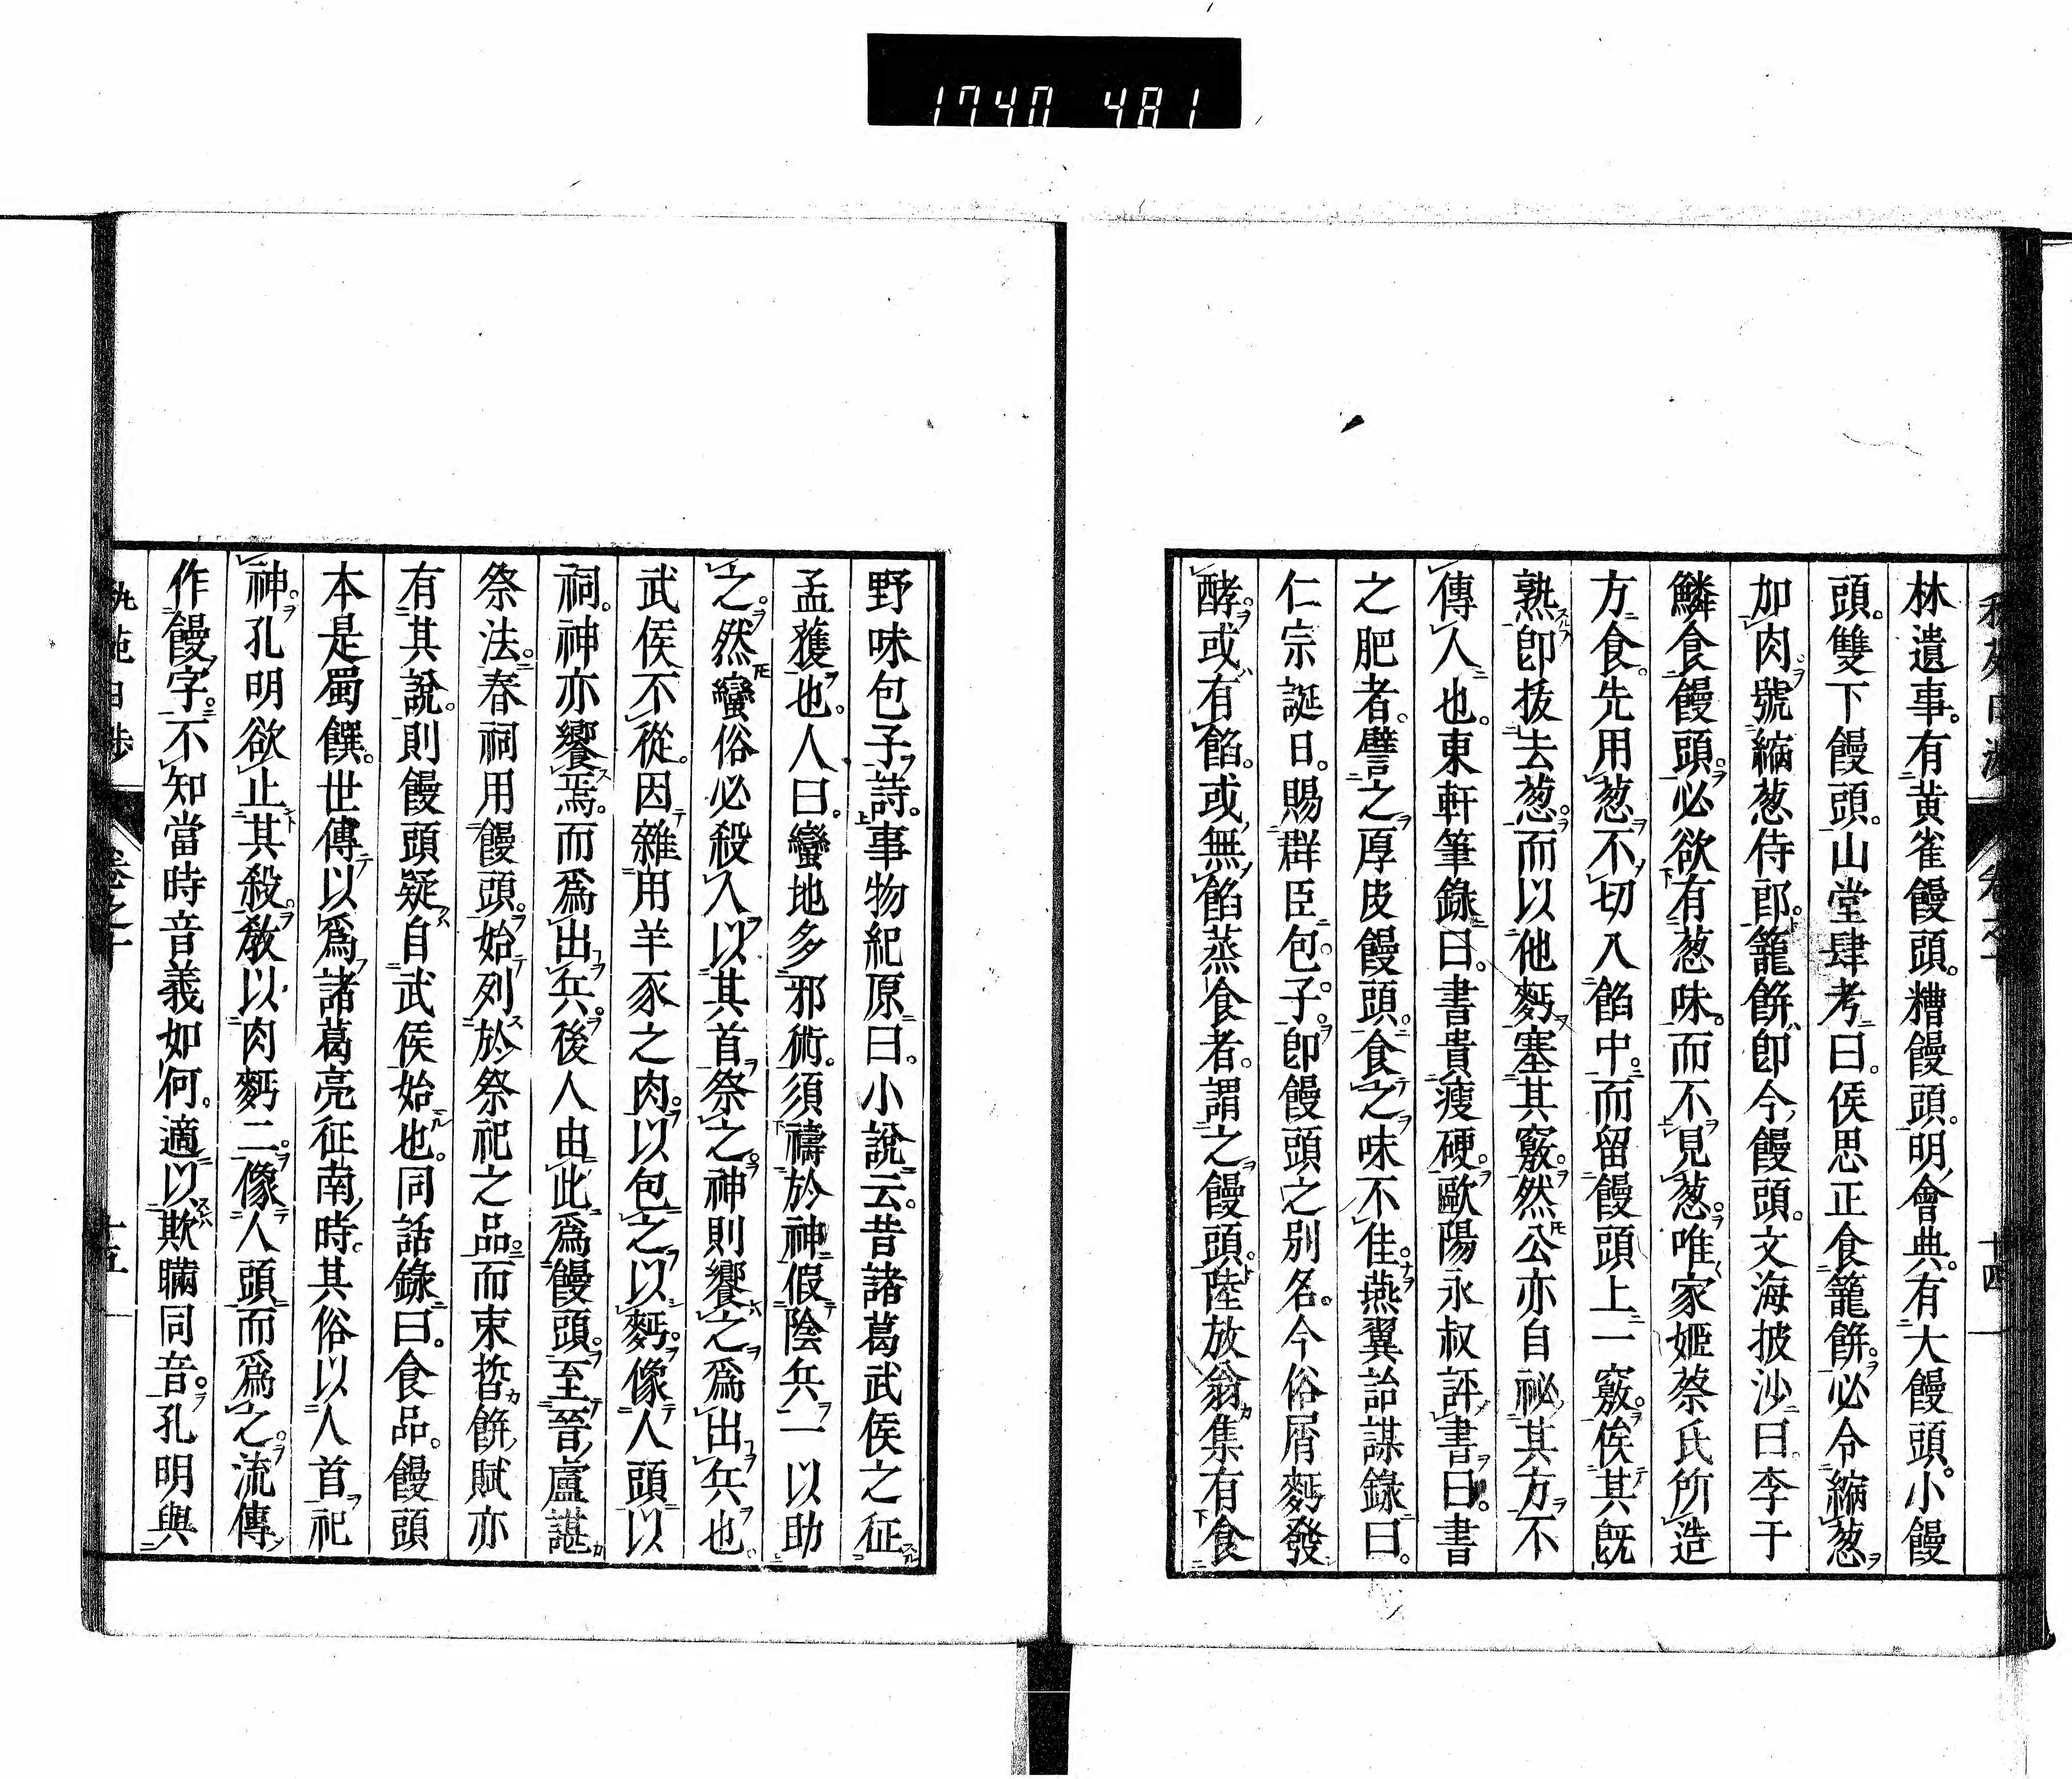 1740 481
林遺事。有黄雀饅頭。糟饅頭。明會典。有大饅頭。小饅
頭。雙下饅頭。山堂肆考曰。侯思正食籠餅。必令縮葱
加肉。號縮葱侍郎。籠餅即今饅頭。文海披沙曰。李于
鱗食饅頭。必欲有葱味。而不見葱。唯家姬蔡氏所造
方食。先用葱不切入餡中。而留饅頭上一竅。俟其既
熟即拔去葱。而以他麪塞其竅。然公亦自祕其方不
傳人也。東軒筆錄曰。書貴瘦硬。歐陽永叔評書曰。書
之肥者。譬之厚皮饅頭。食之味不佳。燕翼詒謀錄曰。
仁宗誕日。賜群臣包子。即饅頭之別名。今俗屑麪發
酵。或有餡。或無餡蒸食者。謂之饅頭。陸放翁集有食
卷之十
十四
野味包子詩。事物紀原曰。小說云。昔諸葛武侯之征
孟獲也。人曰。蠻地多邪術。須禱於神假陰兵一以助
之。然蠻俗必殺人以其首祭之。神則饗之爲出兵也。
武侯不從。因雜用羊豕之肉。以包之以麪。像人頭以
祠。神亦饗焉。而爲出兵。後人由此爲饅頭。至晉盧諶
祭法。春祠用饅頭。始列於祭祀之品。而束晳餅賦亦
有其說。則饅頭疑自武侯始也。同話錄曰。食品。饅頭
本是蜀饌。世傳以爲諸葛亮征南時。其俗以人首祀
神。孔明欲止其殺。教以肉麪二。像人頭而爲之。流傳
作饅字。不知當時音義如何。適以欺瞞同音。孔明與
卷之十
十五